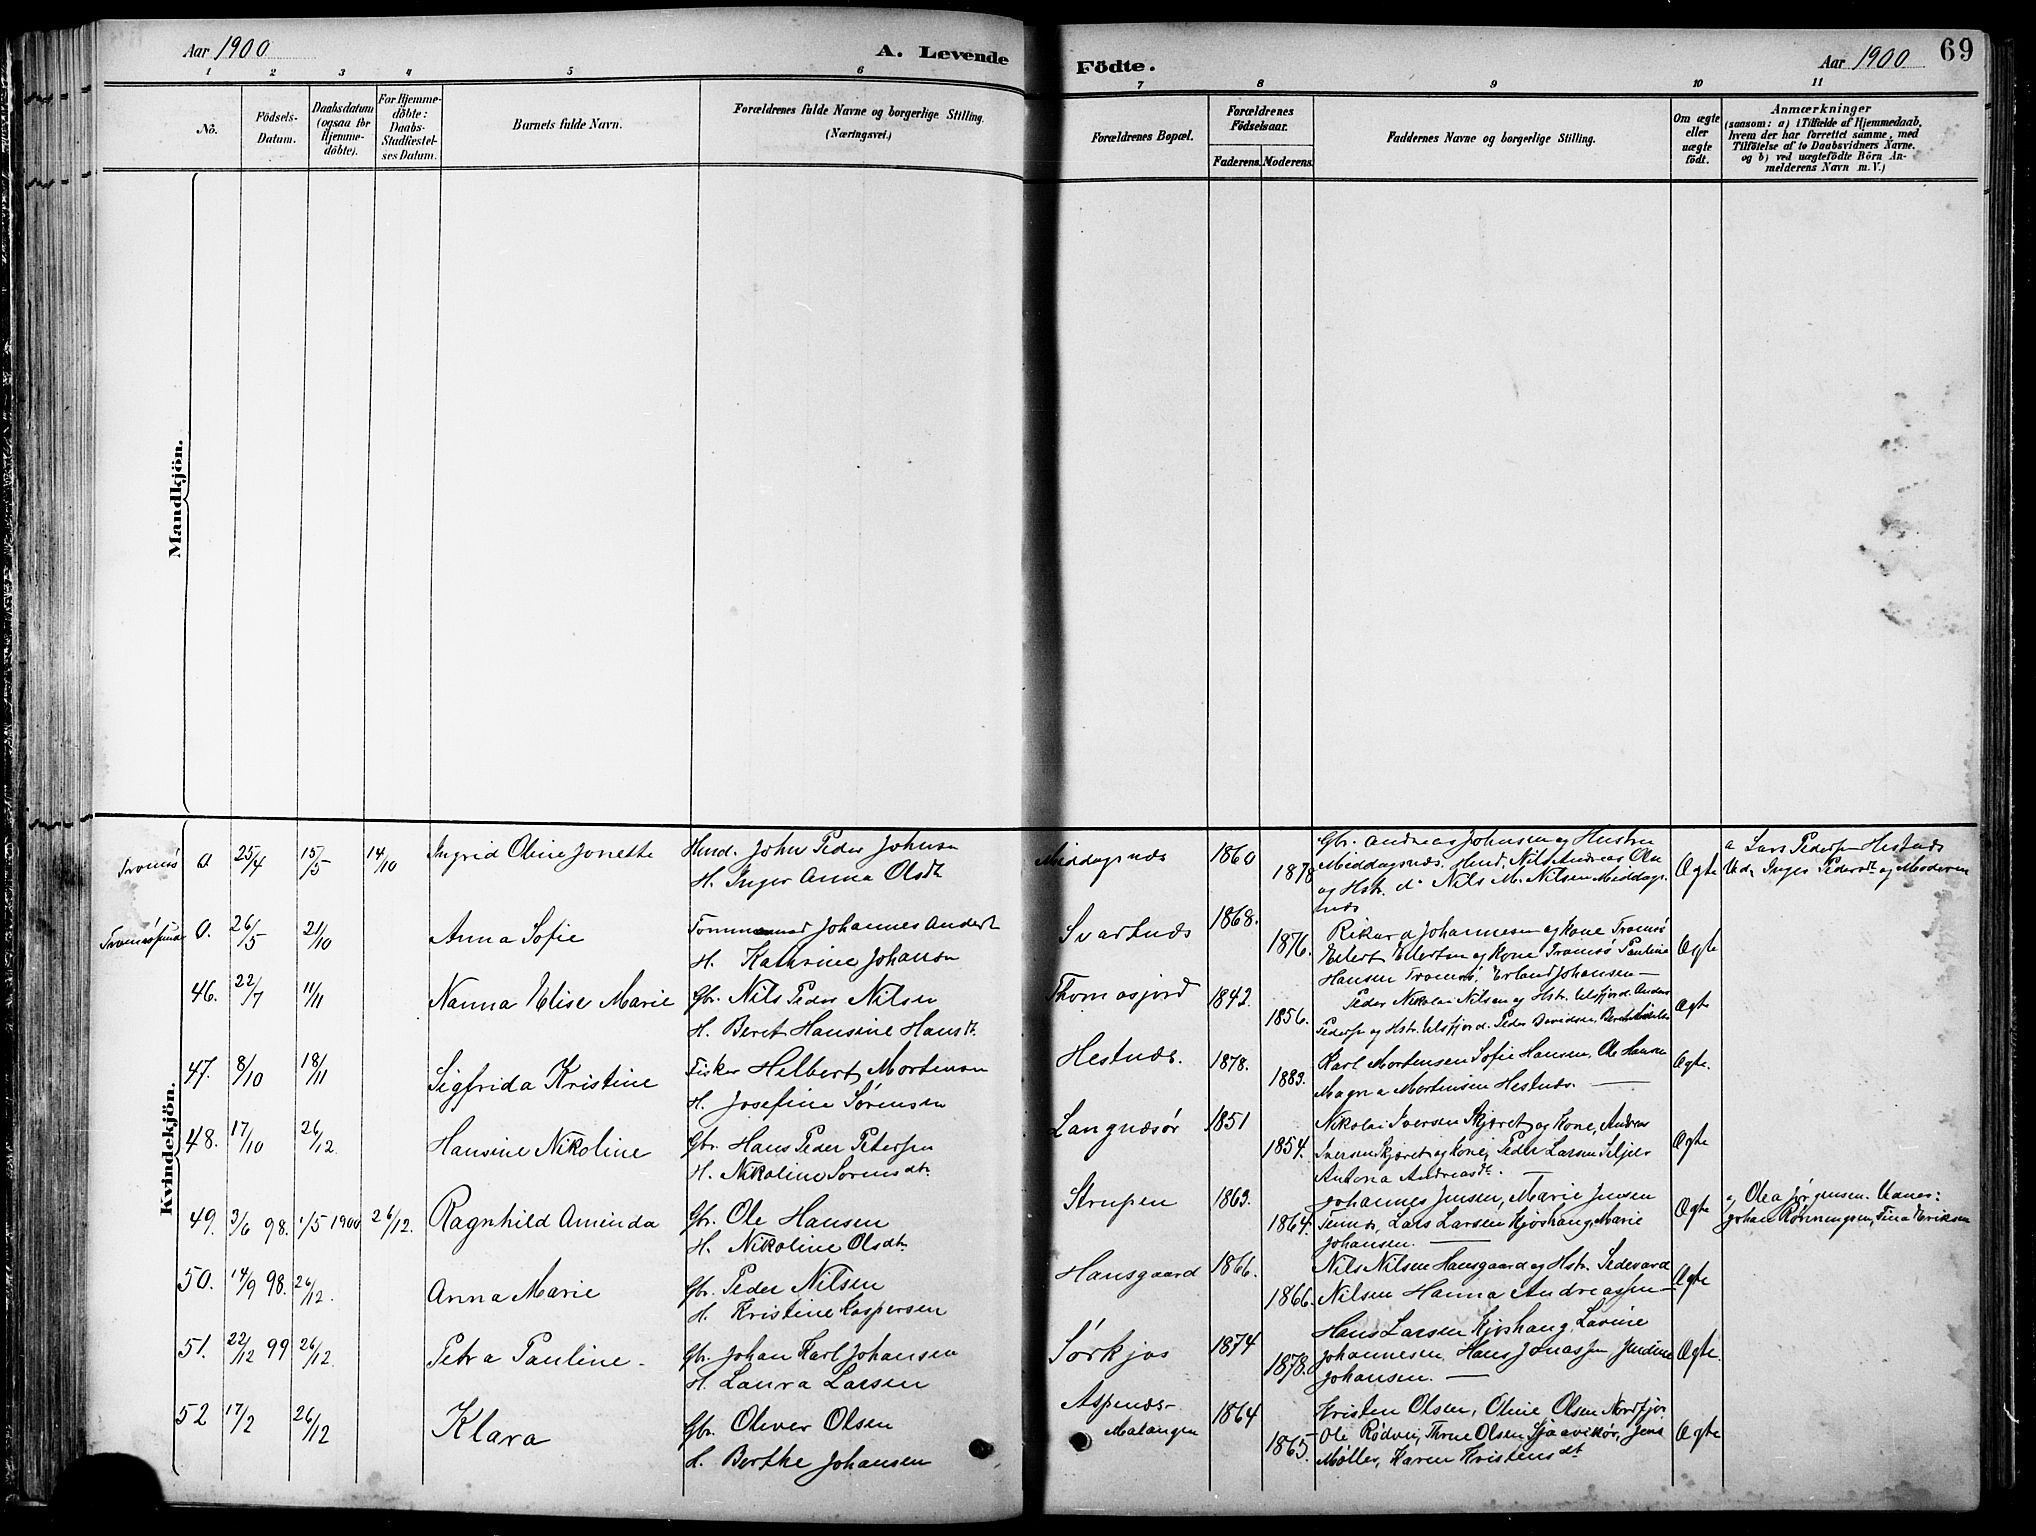 Aar 1900
A. Levende
Födte.
Aar 1900
69
1 2 3 4 5 6 7 8 9 10 11
No.
Födsels-
Datum.
Daabsdatum
(ogsaa for
Hjemme-
döbte).
For Hjemme-
döbte:
Daabs-
Stadfæstel-
ses Datum.
Barnets fulde Navn.
Forældrenes fulde Navne og borgerlige Stilling.
(Næringsvei.)
Forældrenes Bopæl.
Forældrenes
Födselsaar.
Faderens. Moderens.
Faddernes Navne og borgerlige Stilling.
Om ægte
eller
uægte
födt.
Anmærkninger
(saasom: a) i Tilfælde af Hjemmedaab,
hvem der har forrettet samme, med
Tilföielse af to Daabsvidners Navne,
og b) ved uægtefödte Börn An-
melderens Navn m. V.)
Mandkjön.
Kvindekjön.
Tromsø 0 25/4 15/5 14/10 Ingrid Oline Jonette
John Peder Johnsn
H. Inger Anna Olsdt
Middagsnæs 1860 1878
Gbr. Andreas Johnsen og Hustru
Middagsnæs, Nils Andreas
og Hstr. Nils M. Nilsen Middags-
næs
Ægte
a Lars Pedersen Hestnæs
og Moderen
Tromsøsund 0. 26/5 21/10 Anna Sofie
Tømmermand Johannes Andert
H. Kathrine Johansn
Svartnæs 1868. 1876.
Rikard Johannesen og Kone Tromsø
Eilert Eilertsen og Kone Tromsø Pauline
Hansen Tromsø, Erland Johansen —
Ægte
46. 22/7 11/11 Nanna Elise Marie
Gbr. Nils Peder Nilsen
H. Beret Hansine Hansdt.
Thomasjord 1842. 1856.
Peder Nikolai Nilsen og Hstr. Ulsfjord. Anders
Pedersen og Hstr. Ulsfjord. Peder Davidsen,
Ægte
47. 8/10 18/11 Sigfrida Kristine
Fisker Hilbert Mortensen
H. Josefine Sørensen
Hestnæs. 1878. 1883.
Karl Mortensen Sofie Hansen, Ole Hansen
Magna Mortensen Hestnæs. —
Ægte.
48. 17/10 26/12. Hansine Nikoline
Gbr. Hans Peder Petersen
H. Nikoline Sørensdt.
Langnæsør 1851 1854.
Nikolai Iversen Skjæret og Kone, Andreas
Iversen Skjæret og Kone, Peder Larsen
Antona Andreasdt. —
Ægte
49. 3/6 98. 1/5 1900 26/12. Ragnhild Aminda
Gbr. Ole Hansen
H. Nikoline Olsdt.
Strupen 1863. 1864.
Johannes Jensen, Marie Jensen
Lars Larsen Kjøshaug, Marie
Johansen. —
Ægte
Olea Jørgensen.
Johan Rønningsen, Tina Eriksen
50. 14/9 98. 26/12. Anna Marie
Gbr. Peder Nilsen
H. Kristine Kaspersen
Hansgaard 1866. 1866.
Nils Nilsen Hansgaard og Hstr. Sedevard
Nilsen Hanna Andreassen —
Ægte
51. 22/12 99 26/12. Petra Pauline -
Gbr. Johan Karl Johansen
H. Laura Larsen
Sørkjos 1874 1878.
Hans Larsen Kjøshaug, Lavine
Johannesen, Hans Jonassen
Johansen. —
Ægte.
52 17/2 26/12 Klara
Gbr. Oliver Olsen
H. Berthe Johansen
Aspenæs-
Malangen 1864 1865.
Kristen Olsen, Oline Olsen Nordfjor
Ole Rødvei, Thrine Olsen Sjaavikør, Jens
Møller, Karen Kristensdt
Ægte